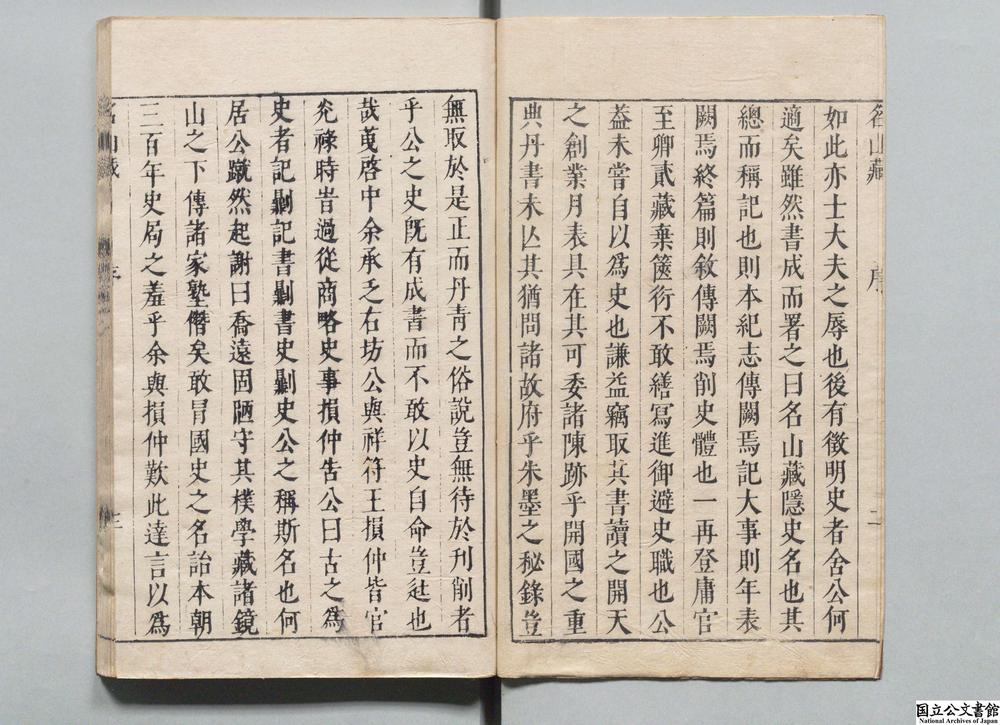 名山藏 序 二
如此亦士大夫之辱也後有徵明史者舍公何
適矣雖然書成而署之曰名山藏隱史名也其
總而稱記也則本紀志傳闕焉記大事則年表
闕焉終篇則敘傳闕焉削史體也一再登庸官
至卿貳藏棄篋衍不敢繕寫進御避史職也公
蓋未嘗自以爲史也謙益竊取其書讀之開天
之創業月表具在其可委諸陳跡乎開國之重
典丹書未亾其猶問諸故府乎朱墨之秘錄豈
無取於是正而丹靑之俗說豈無待於刋削者
乎公之史旣有成書而不敢以史自命豈迋也
哉萬啓中余承乏右坊公與祥符王損仲皆官
光祿時旹過從商略史事損仲吿公曰古之爲
史者記剿記書剿書史剿史公之稱斯名也何
居公蹴然起謝曰喬遠固陋守其樸學藏諸鏡
山之下傳諸家塾僭矣敢冒國史之名詒本朝
三百年史局之羞乎余與損仲歎此達言以爲
名山藏 序 三
国立公文書館
National Archives of Japan